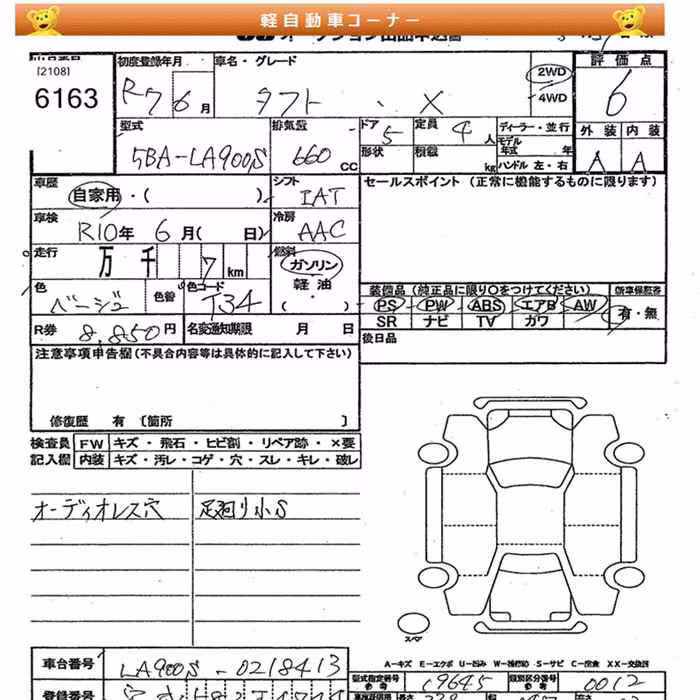 軽自動車コーナー
[2108]
6163
初度登録年月
R7 6月
車名・グレード
タフト ・ X
2WD
4WD
評価点
6
外装 内装
A A
型式
5BA-LA900S
排気量
660 CC
ドア 5
形状
定員 4 人
積載 kg
ディーラー・並行
モデル年式 年
ハンドル 左・右
車歴
自家用・( )
シフト
IAT
セールスポイント(正常に機能するものに限ります)
車検
R10年 6月( 日)
冷房
AAC
走行
万 千 7 km
燃料
ガソリン
軽油
( )
色
ベージュ
色替
色コード
T34
装備品(純正品に限り○をつけてください)
新車保証書
PS PW ABS エアB AW
有・無
SR ナビ TV カワ
R券 8,850円
名変通知期限 月 日
後日品
注意事項申告欄(不具合内容等は具体的に記入して下さい)
修復歴 有 〔箇所 〕
検査員 FW キズ・飛石・ヒビ割・リペア跡・×要
記入欄 内装 キズ・汚レ・コゲ・穴・スレ・キレ・破レ
オーディオレス穴
足廻り小S
スペア
A-キズ E-エクボ U-凹み W-補修跡 S-サビ C-腐食 XX-交換済
車台番号
LA900S-0218413
型式指定番号
参考
19645
類別区分番号
参考
0012
登録番号